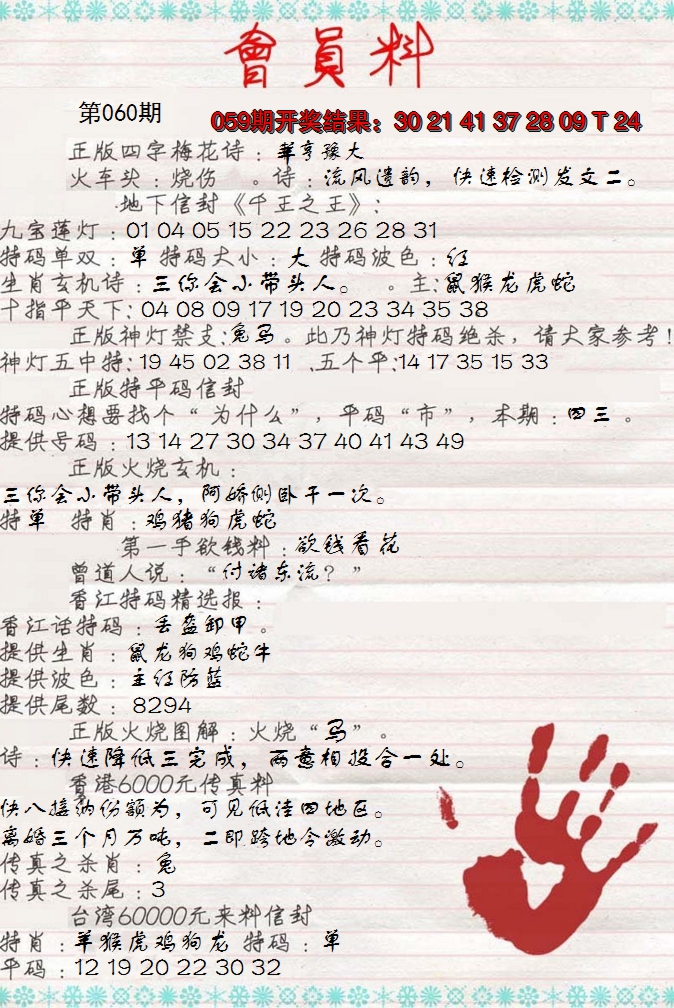 會員料
第060期
059期开奖结果：30 21 41 37 28 09 T 24
正版四字梅花诗：華亨豫大
火车头：烧伤 。诗：流风遗韵，快速检测发文二。
地下信封《千王之王》：
九宝莲灯：01 04 05 15 22 23 26 28 31
特码单双：单 特码大小：大 特码波色：红
生肖玄机诗：三你会小带头人。 。主：鼠猴龙虎蛇
十指平天下：04 08 09 17 19 20 23 34 35 38
正版神灯禁支：兔马。此乃神灯特码绝杀，请大家参考！
神灯五中特：19 45 02 38 11 .五个平：14 17 35 15 33
正版特平码信封
特码心想要找个“为什么”，平码“市”，本期：四三 。
提供号码：13 14 27 30 34 37 40 41 43 49
正版火烧玄机：
三你会小带头人，阿娇侧卧干一次。
特单 特肖：鸡猪狗虎蛇
第一手欲钱料：欲钱看花
曾道人说：“付诸东流？”
香江特码精选报：
香江话特码：丢盔卸甲。
提供生肖：鼠龙狗鸡蛇牛
提供波色：主红防蓝
提供尾数：8294
正版火烧图解：火烧“马”。
诗：快速降低三完成，两意相投合一处。
香港6000元传真料
快八接纳份额为，可见低洼四地区。
离婚三个月万吨，二即跨地令激动。
传真之杀肖：兔
传真之杀尾：3
台湾60000元来料信封
特肖：羊猴虎鸡狗龙 特码：单
平码：12 19 20 22 30 32